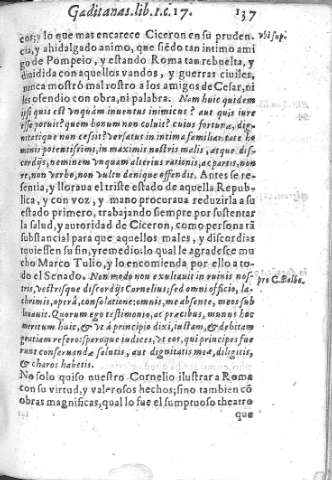 Gaditanas.lib.1.c.17. 137
cos; y lo que mas encarece Ciceron en su pruden-
cia, y ahidalgado animo, que siẽdo tan intimo ami
go de Pompeio, y estando Roma tan rebuelta, y
diuidida con aquellos vandos, y guerras ciuiles,
nunca mostró mal rostro a los amigos de Cesar, ni
les ofendio con obra, ni palabra. Nam huic quidem
ipsi quis est vnquam inuentus inimicus? aut quis iure
esse potuit? quem bonum non coluit? cuius fortunæ, dig-
nitatique non cessit? versatus in intima familiaritate ho
minis potentissimi, in maximis nostris malis, atque dis-
cordijs, neminem vnquam alterius rationis, ac partis, non
re, non verbo, non vultu denique offendit. Antes se re-
sentia, y lloraua el triste estado de aquella Repub-
lica, y con voz, y mano procuraua reduzirla a su
estado primero, trabajando siempre por sustentar
la salud, y autoridad de Ciceron, como persona tã
substancial para que aquellos males, y discordias
tuuiessen su fin, y remedio: lo qual le agradesce mu
cho Marco Tulio, y lo encomienda por ello a to-
do el Senado. Non modo non exultauit in ruinis nos-
tris, vestrisque discordijs Cornelius; sed omni officio, la-
chrimis, opera, consolatione: omnis, me absente, meos sub
leuauit. Quorum ego testimonio, ac præcibus, munus hoc
meritum huic, & vt à principio dixi, iustam, & debitam
gratiam refero: speroque iudices, vt eos, qui principes fue
runt conseruandæ salutis, aut dignitatis meæ, diligatis,
& charos habetis.
No solo quiso nuestro Cornelio ilustrar a Roma
con su virtud, y valerosos hechos; sino tambien cõ
obras magnificas, qual lo fue el sumptuoso theatro
que
vbi sup.
pro C. Balbo.